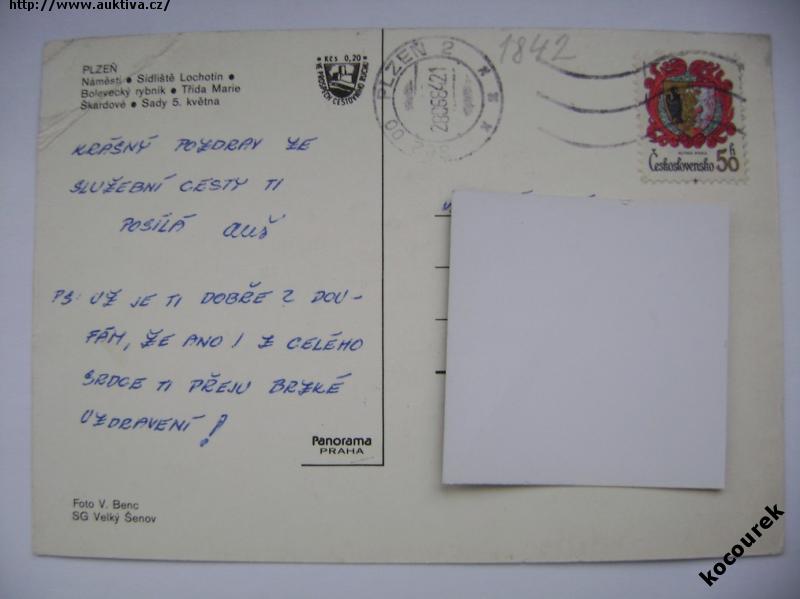 http://www.auktiva.cz/
PLZEŇ
Náměstí • Sídliště Lochotín •
Bolevecký rybník • Třída Marie
Škardové • Sady 5. května
Kčs 0,20
VE PROSPĚCH CESTOVNÍHO RUCHU
PLZEŇ 2
28068421
00
1842
Československo 50 h
KRÁSNÝ POZDRAV ZE
SLUŽEBNÍ CESTY TI
POSÍLÁ
PS: UŽ JE TI DOBŘE? DOU-
FÁM, ŽE ANO! Z CELÉHO
SRDCE TI PŘEJU BRZKÉ
UZDRAVENÍ!
Panorama
PRAHA
Foto V. Benc
SG Velký Šenov
kocourek